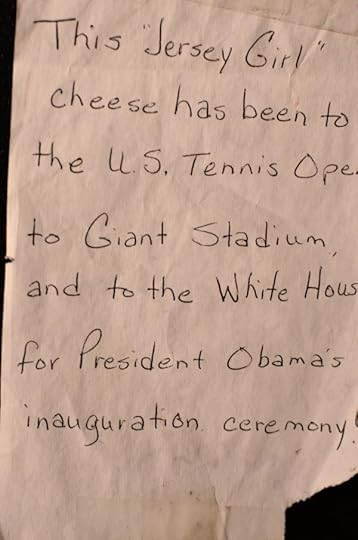 This "Jersey Girl"
cheese has been to
the U.S. Tennis Ope
to Giant Stadium,
and to the White Hous
for President Obama's
inauguration ceremony!